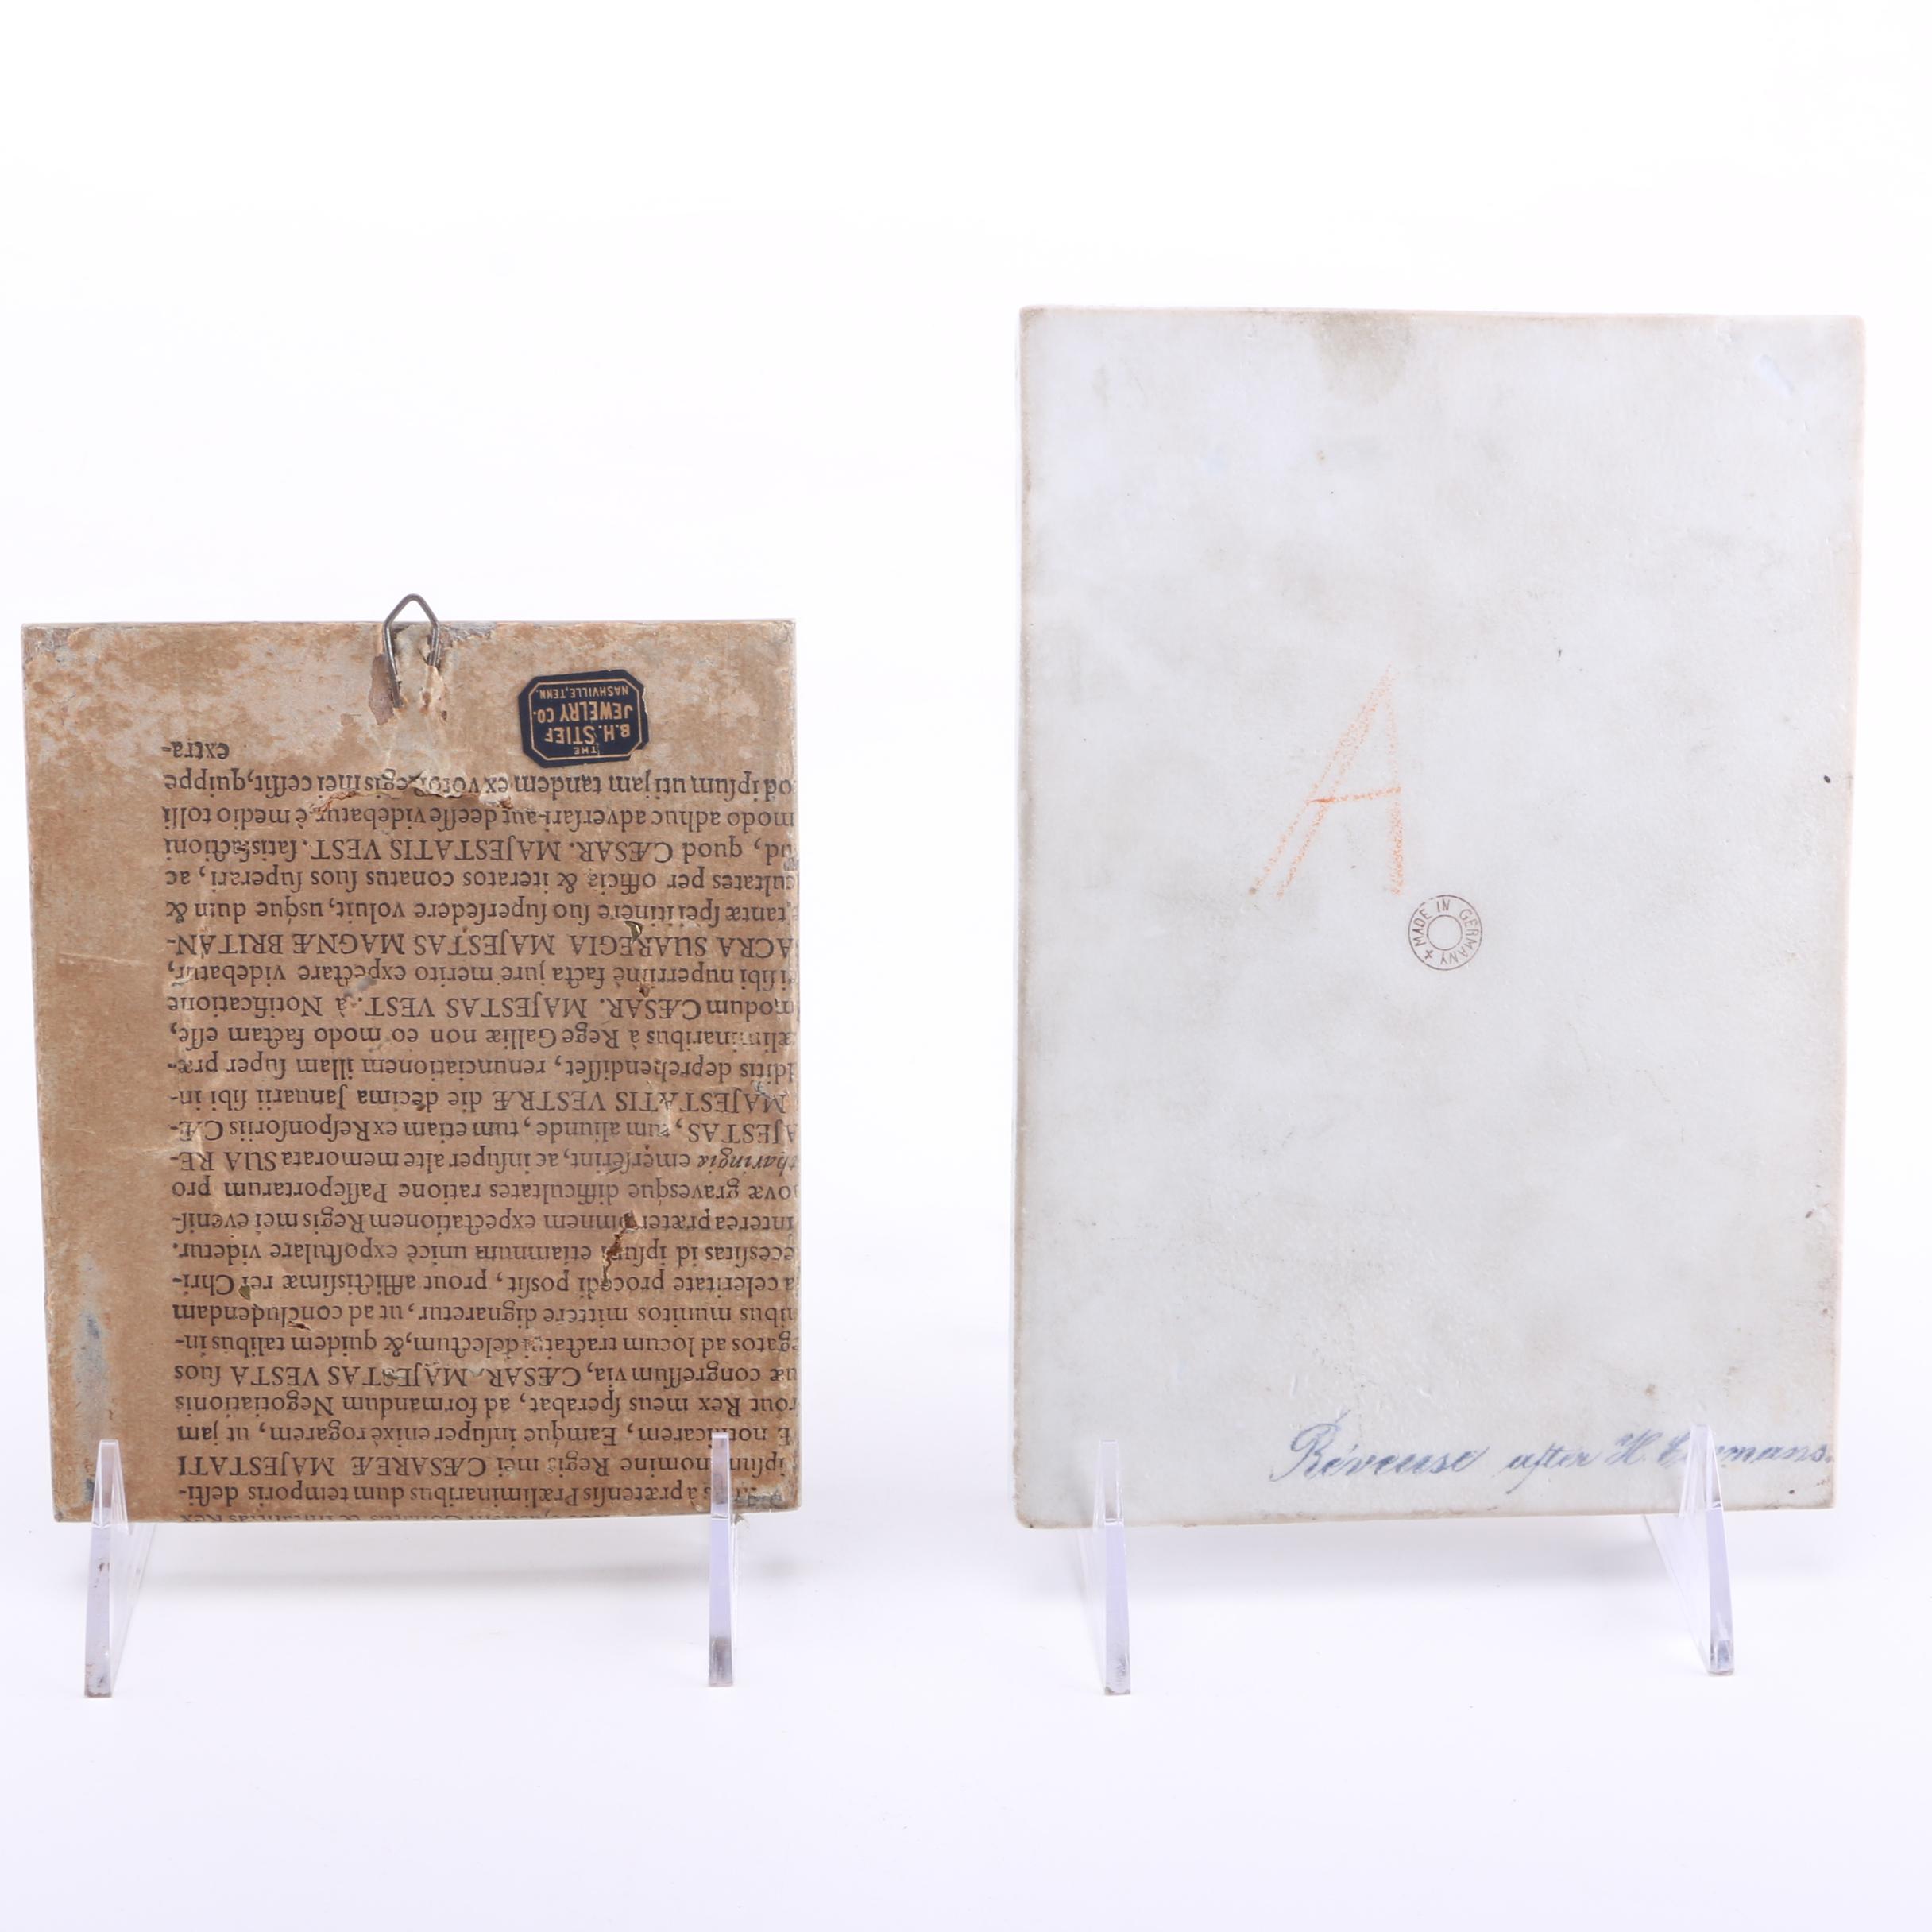 THE
B.H. STIEF
JEWELRY CO.
NASHVILLE, TENN.
ipsum nomine Regis mei CÆSAREÆ MAJESTATI
notificarem, Eamque insuper enixè rogarem, ut jam
Rex meus sperabat, ad formandum Negotiationis
congressum via, CÆSAR. MAJESTAS VESTA suos
ad locum tractatui delectum, & quidem talibus in-
munitos mittere dignaretur, ut ad concludendam
celeritate procedi possit, prout afflictissimæ rei Chri-
id ipsum etiamnum unicè expostulare videtur.
interea præter omnem expectationem Regis mei evenis-
gravesque difficultates ratione Passeportarum pro
emerserint, ac insuper alte memorata SUA RE-
tum aliunde, tum etiam ex Responsoriis CÆ-
MAJESTATIS VESTRÆ die decima Januarii sibi in-
deprehendisset, renunciationem illam super præ-
à Rege Galliæ non eo modo factam esse,
CÆSAR. MAJESTAS VEST. à Notificatione
sibi nuperrimè facta jure merito expectare videbatur,
SUA REGIA MAJESTAS MAGNÆ BRITAN-
tantæ spei itinere suo supersedere voluit, usque dum &
per officia & iteratos conatus suos superari, ac
quod CÆSAR. MAJESTATIS VEST. satisfactioni
modo adhuc adversari aut deesse videbatur, è medio tolli
ipsum uti jam tandem ex voto Regis mei cessit, quippe
extra-
A
MADE IN GERMANY
Réveuse after H.